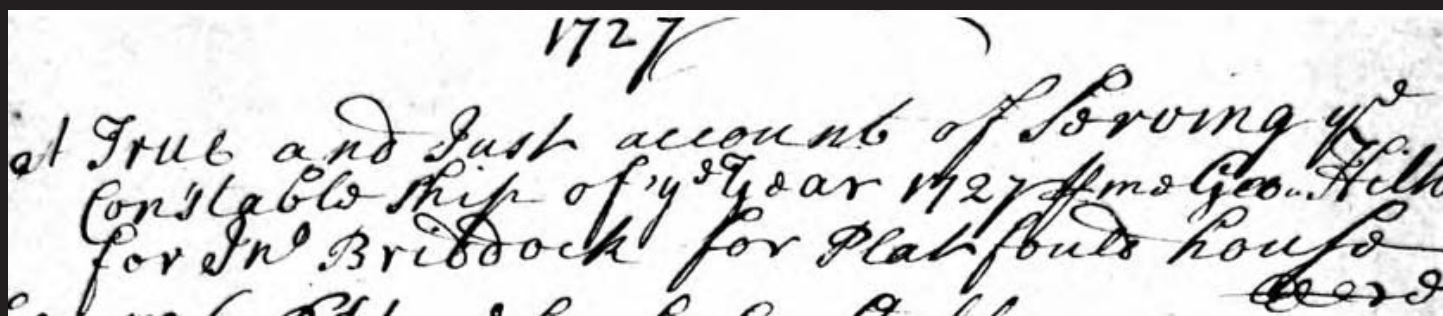 1727
A True and Just account of Serving ye
Constable Ship of ye Year 1727 ⅌ me Geo: Hilh
for Jno Briddock for Plat foulds house